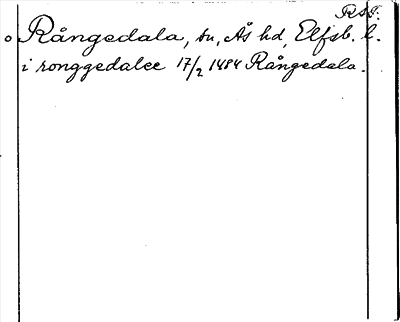 RSS.
o Rångedala, sn, Ås hd, Elfsb. l.
i ronggedalee 17/2 1484 Rångedala.